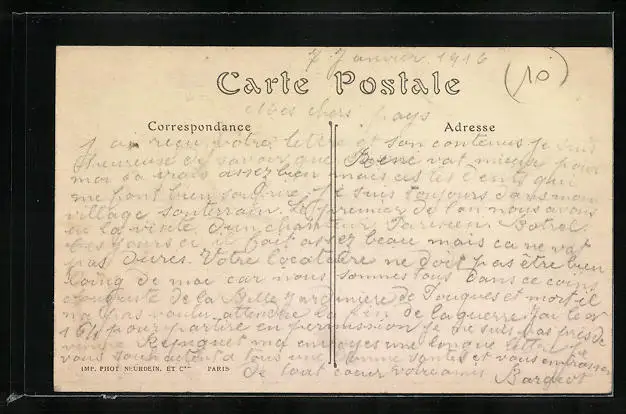 7 Janvier 1916
(10)
Carte Postale
Mes chers pays
Correspondance
Adresse
J ai reçu votre lettre et son contenus je suis
heureuse de savoir que Rene vat mieux pour
moi sa vrais assez bien mais ces les dents qui
me font bien soufrire. Je suis toujours dans mon
village souterrain. Le premier de l'an nous avons
eu la visite d'un chanteur Parisien Botrel
Ces jours ci il fait assez beau mais ca ne vat
pas durer. Votre locataire ne doit pas être bien
loing de moi car nous sommes tous dans ce coins
de la Belle Jardiniere de Fouques et morf il
na pas voulu attendre la fin de la guerre J'ai le no
164 pour partire en permission je ne suis pas près de
venir Repiquet ma envoyes une longue lettre Je
vous souhaitent a tous une bonne santé et vous embrasse
de tout coeur votre amis Bargeot
IMP. PHOT. NEURDEIN. ET Cie PARIS